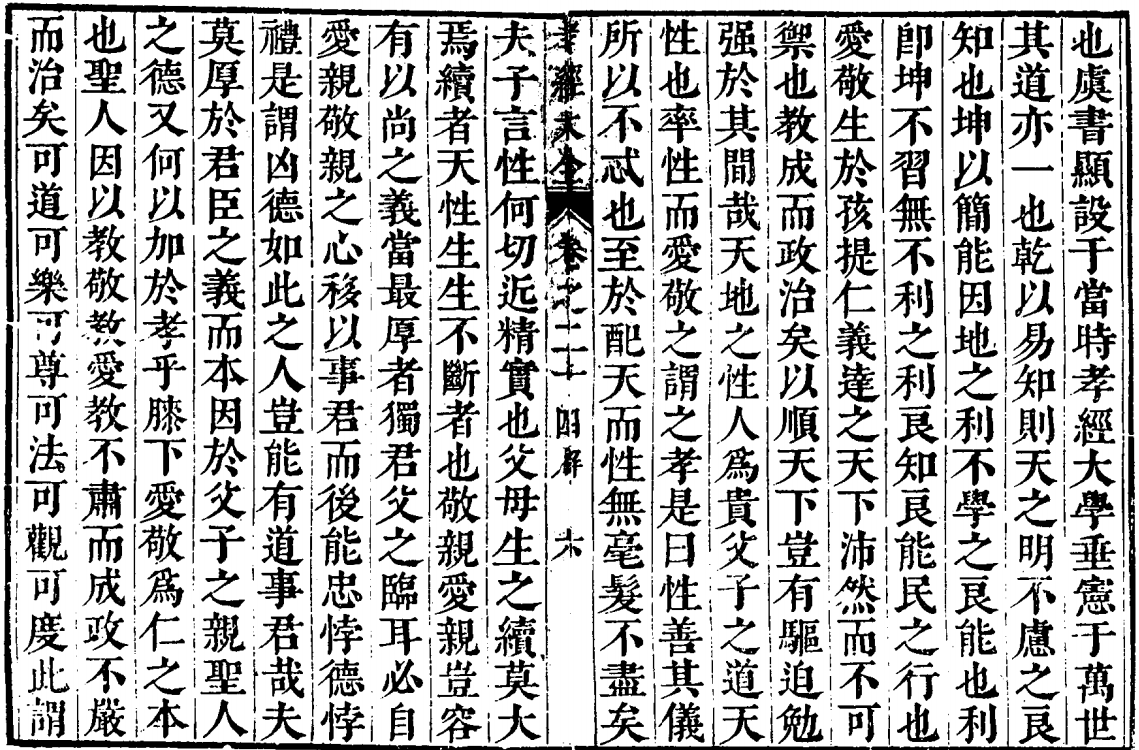 也虞書顯設于當時孝經大學垂憲于萬世
其道亦一也乾以易知則天之明不慮之良
知也坤以簡能因地之利不學之良能也利
卽坤不習無不利之利良知良能民之行也
愛敬生於孩提仁義達之天下沛然而不可
禦也教成而政治矣以順天下豈有驅迫勉
强於其間哉天地之性人爲貴父子之道天
性也率性而愛敬之謂之孝是曰性善其儀
所以不忒也至於配天而性無毫髮不盡矣
孝經大全 卷之二十 四解 六
夫子言性何切近精實也父母生之續莫大
焉續者天性生生不斷者也敬親愛親豈容
有以尚之義當最厚者獨君父之臨耳必自
愛親敬親之心移以事君而後能忠悖德悖
禮是謂凶德如此之人豈能有道事君哉夫
莫厚於君臣之義而本因於父子之親聖人
之德又何以加於孝乎膝下愛敬爲仁之本
也聖人因以教敬教愛教不肅而成政不嚴
而治矣可道可樂可尊可法可觀可度此謂